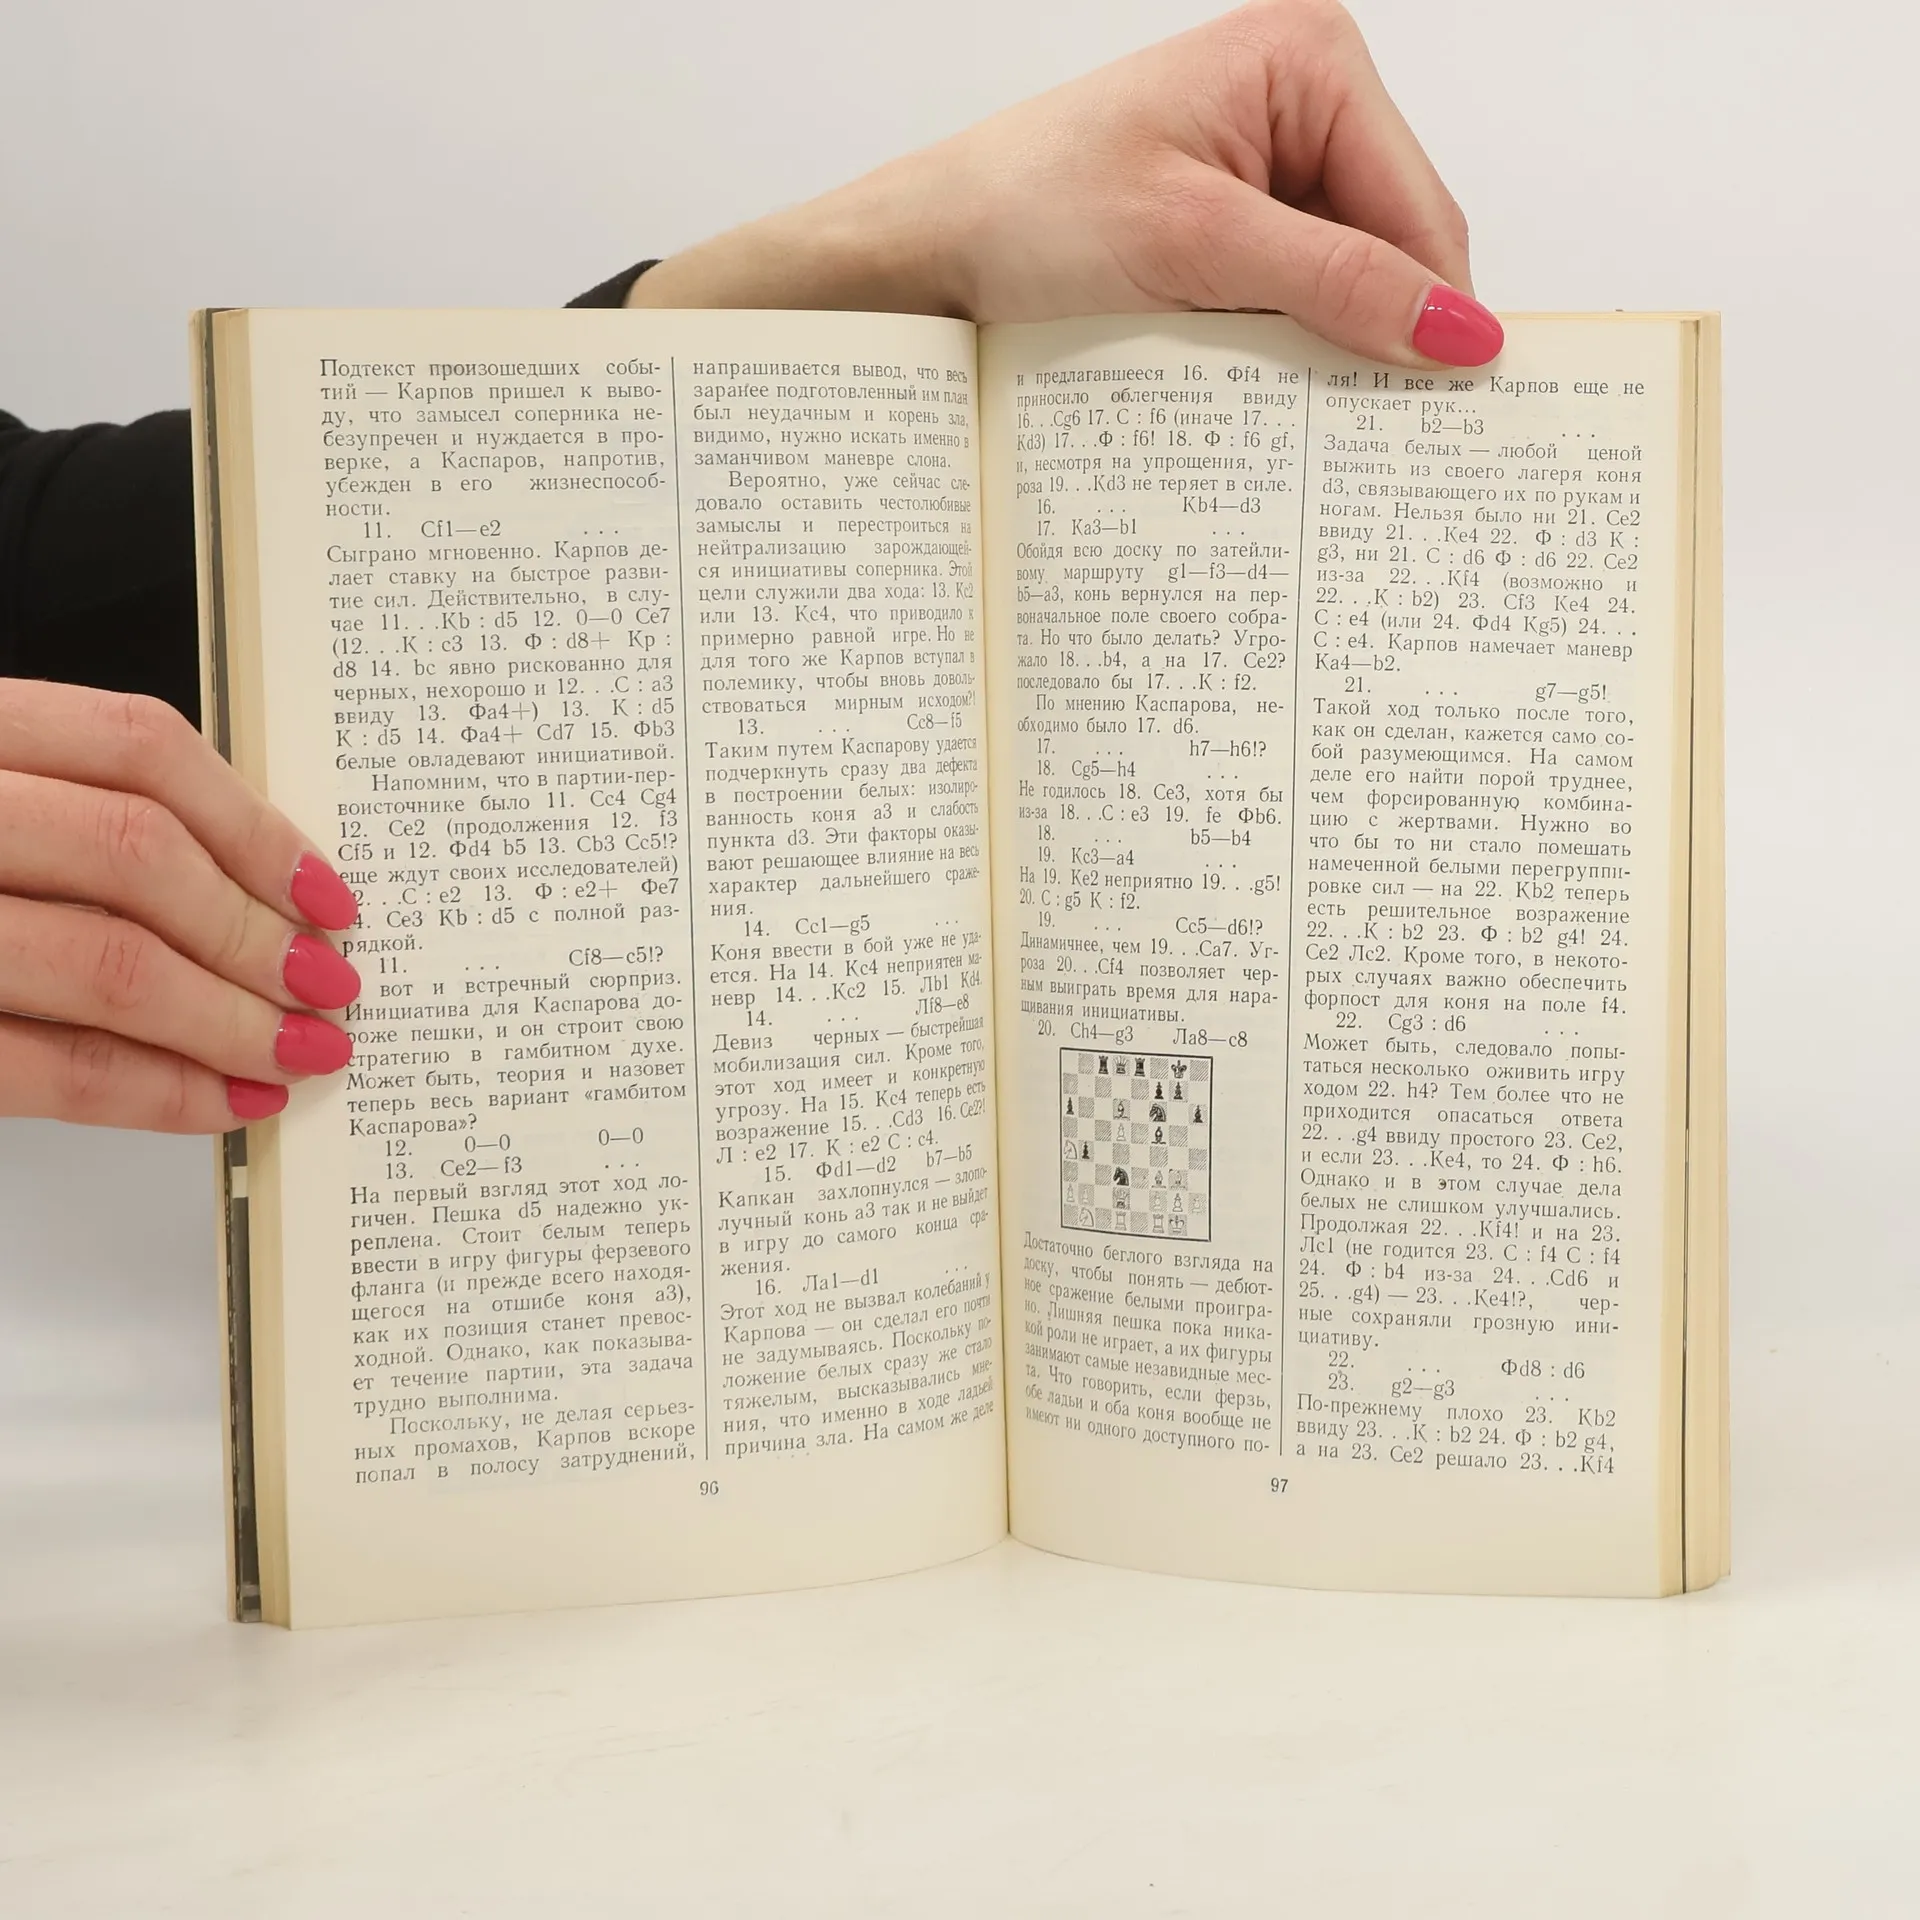 Подтекст произошедших собы-
тий — Карпов пришел к выво-
ду, что замысел соперника не-
безупречен и нуждается в про-
верке, а Каспаров, напротив,
убежден в его жизнеспособ-
ности.
11. Cf1—e2 . . .
Сыграно мгновенно. Карпов де-
лает ставку на быстрое разви-
тие сил. Действительно, в слу-
чае 11. . .Kb : d5 12. 0—0 Ce7
(12. . .K : c3 13. Ф : d8+ Kp :
d8 14. bc явно рискованно для
черных, нехорошо и 12. . .C : a3
ввиду 13. Фa4+) 13. K : d5
K : d5 14. Фa4+ Cd7 15. Фb3
белые овладевают инициативой.
Напомним, что в партии-пер-
воисточнике было 11. Cc4 Cg4
12. Ce2 (продолжения 12. f3
Cf5 и 12. Фd4 b5 13. Cb3 Cc5!?
еще ждут своих исследователей)
2. . .C : e2 13. Ф : e2+ Фe7
4. Ce3 Kb : d5 с полной раз-
рядкой.
11. . . . Cf8—c5!?
вот и встречный сюрприз.
Инициатива для Каспарова до-
роже пешки, и он строит свою
стратегию в гамбитном духе.
Может быть, теория и назовет
теперь весь вариант «гамбитом
Каспарова»?
12. 0—0 0—0
13. Ce2—f3 . . .
На первый взгляд этот ход ло-
гичен. Пешка d5 надежно ук-
реплена. Стоит белым теперь
ввести в игру фигуры ферзевого
фланга (и прежде всего находя-
щегося на отшибе коня a3),
как их позиция станет превос-
ходной. Однако, как показыва-
ет течение партии, эта задача
трудно выполнима.
Поскольку, не делая серьез-
ных промахов, Карпов вскоре
попал в полосу затруднений,
напрашивается вывод, что весь
заранее подготовленный им план
был неудачным и корень зла,
видимо, нужно искать именно в
заманчивом маневре слона.
Вероятно, уже сейчас сле-
довало оставить честолюбивые
замыслы и перестроиться на
нейтрализацию зарождающей-
ся инициативы соперника. Этой
цели служили два хода: 13. Kc2
или 13. Kc4, что приводило к
примерно равной игре. Но не
для того же Карпов вступал в
полемику, чтобы вновь доволь-
ствоваться мирным исходом?!
13. . . . Cc8—f5
Таким путем Каспарову удается
подчеркнуть сразу два дефекта
в построении белых: изолиро-
ванность коня a3 и слабость
пункта d3. Эти факторы оказы-
вают решающее влияние на весь
характер дальнейшего сраже-
ния.
14. Cc1—g5 . . .
Коня ввести в бой уже не уда-
ется. На 14. Kc4 неприятен ма-
невр 14. . .Kc2 15. Лb1 Kd4.
14. . . . Лf8—e8
Девиз черных — быстрейшая
мобилизация сил. Кроме того,
этот ход имеет и конкретную
угрозу. На 15. Kc4 теперь есть
возражение 15. . .Cd3 16. Ce2?!
Л : e2 17. K : e2 C : c4.
15. Фd1—d2 b7—b5
Капкан захлопнулся — злопо-
лучный конь a3 так и не выйдет
в игру до самого конца сра-
жения.
16. Лa1—d1 . . .
Этот ход не вызвал колебаний у
Карпова — он сделал его почти
не задумываясь. Поскольку по-
ложение белых сразу же стало
тяжелым, высказывались мне-
ния, что именно в ходе ладьей
причина зла. На самом же деле
96
и предлагавшееся 16. Фf4 не
приносило облегчения ввиду
16. . .Cg6 17. C : f6 (иначе 17. . .
Kd3) 17. . .Ф : f6! 18. Ф : f6 gf,
и, несмотря на упрощения, уг-
роза 19. . .Kd3 не теряет в силе.
16. . . . Kb4—d3
17. Ka3—b1 . . .
Обойдя всю доску по затейли-
вому маршруту g1—f3—d4—
b5—a3, конь вернулся на пер-
воначальное поле своего собра-
та. Но что было делать? Угро-
жало 18. . .b4, а на 17. Ce2?
последовало бы 17. . .K : f2.
По мнению Каспарова, не-
обходимо было 17. d6.
17. . . . h7—h6!?
18. Cg5—h4 . . .
Не годилось 18. Ce3, хотя бы
из-за 18. . .C : e3 19. fe Фb6.
18. . . . b5—b4
19. Kc3—a4 . . .
На 19. Ke2 неприятно 19. . .g5!
20. C : g5 K : f2.
19. . . . Cc5—d6!?
Динамичнее, чем 19. . .Ca7. Уг-
роза 20. . .Cf4 позволяет чер-
ным выиграть время для нара-
щивания инициативы.
20. Ch4—g3 Лa8—c8
Достаточно беглого взгляда на
доску, чтобы понять — дебют-
ное сражение белыми проигра-
но. Лишняя пешка пока ника-
кой роли не играет, а их фигуры
занимают самые незавидные мес-
та. Что говорить, если ферзь,
обе ладьи и оба коня вообще не
имеют ни одного доступного по-
ля! И все же Карпов еще не
опускает рук...
21. b2—b3 . . .
Задача белых — любой ценой
выжить из своего лагеря коня
d3, связывающего их по рукам и
ногам. Нельзя было ни 21. Ce2
ввиду 21. . .Ke4 22. Ф : d3 K :
g3, ни 21. C : d6 Ф : d6 22. Ce2
из-за 22. . .Kf4 (возможно и
22. . .K : b2) 23. Cf3 Ke4 24.
C : e4 (или 24. Фd4 Kg5) 24. . .
C : e4. Карпов намечает маневр
Ka4—b2.
21. . . . g7—g5!
Такой ход только после того,
как он сделан, кажется само со-
бой разумеющимся. На самом
деле его найти порой труднее,
чем форсированную комбина-
цию с жертвами. Нужно во
что бы то ни стало помешать
намеченной белыми перегруппи-
ровке сил — на 22. Kb2 теперь
есть решительное возражение
22. . .K : b2 23. Ф : b2 g4! 24.
Ce2 Лc2. Кроме того, в некото-
рых случаях важно обеспечить
форпост для коня на поле f4.
22. Cg3 : d6 . . .
Может быть, следовало попы-
таться несколько оживить игру
ходом 22. h4? Тем более что не
приходится опасаться ответа
22. . .g4 ввиду простого 23. Ce2,
и если 23. . .Ke4, то 24. Ф : h6.
Однако и в этом случае дела
белых не слишком улучшались.
Продолжая 22. . .Kf4! и на 23.
Лc1 (не годится 23. C : f4 C : f4
24. Ф : b4 из-за 24. . .Cd6 и
25. . .g4) — 23. . .Ke4!?, чер-
ные сохраняли грозную ини-
циативу.
22. . . . Фd8 : d6
23. g2—g3 . . .
По-прежнему плохо 23. Kb2
ввиду 23. . .K : b2 24. Ф : b2 g4,
а на 23. Ce2 решало 23. . .Kf4
97